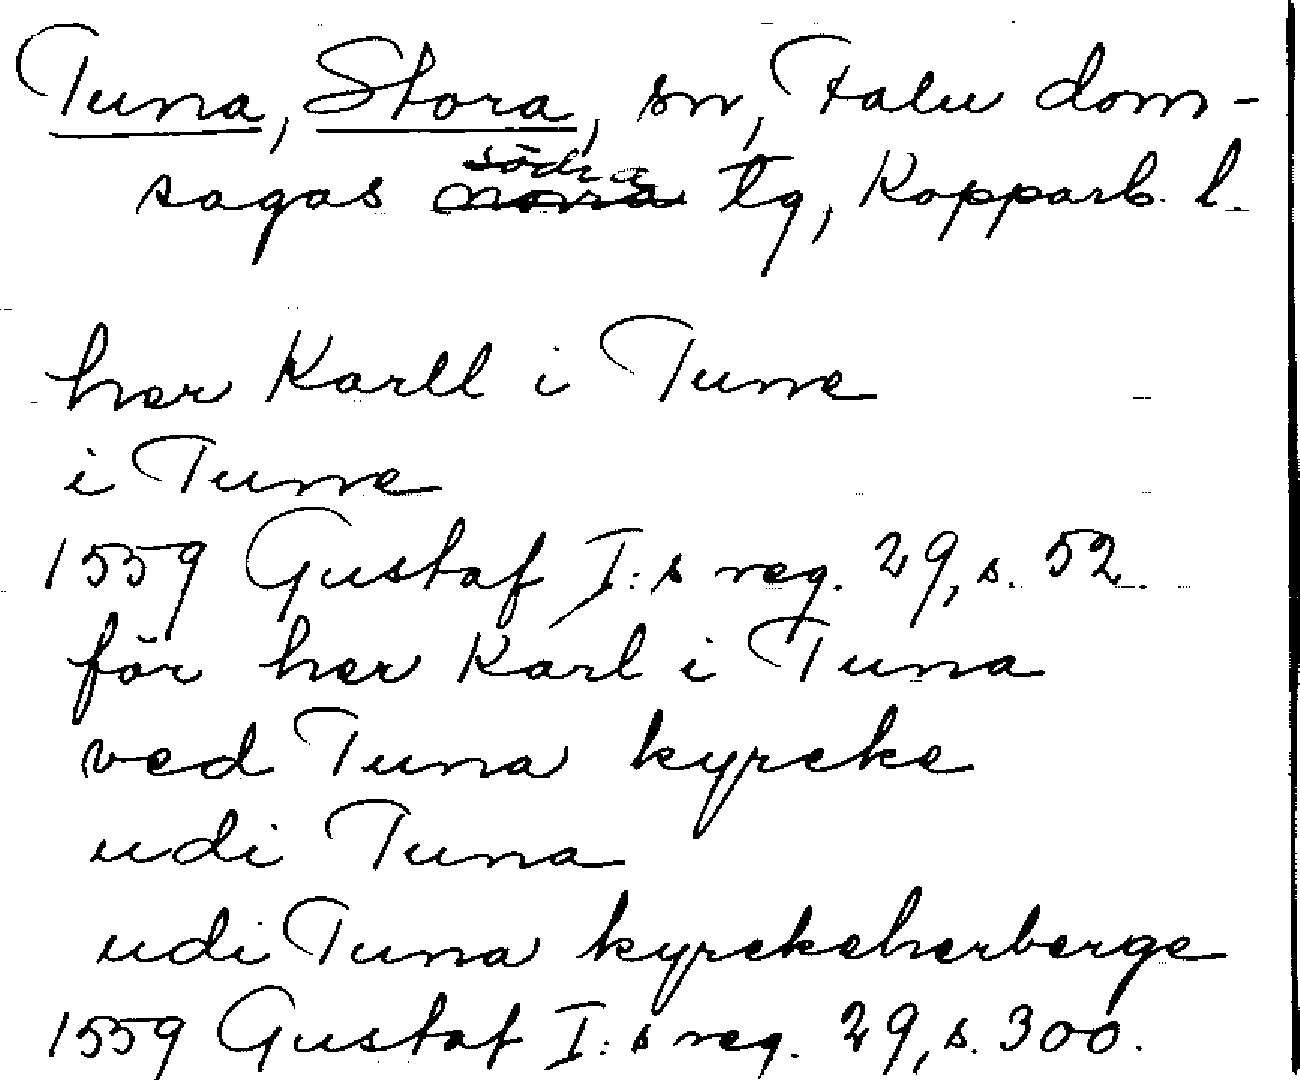 Tuna, Stora, sn, Falu dom-
södra
sagas norra tg, Kopparb. l.
her Karll i Tune
i Tune
1559 Gustaf I:s reg. 29, s. 52.
för her Karl i Tuna
ved Tuna kyrcke
udi Tuna
udi Tuna kyrckeherberge
1559 Gustaf I:s reg. 29, s. 300.